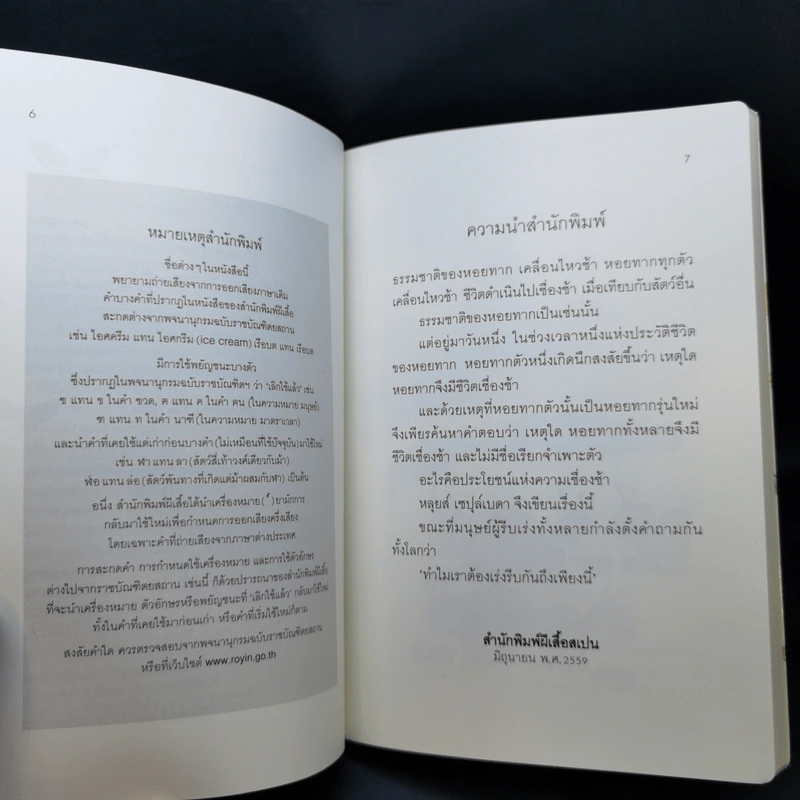 6
หมายเหตุสำนักพิมพ์
ชื่อต่างๆในหนังสือนี้
พยายามถ่ายเสียงจากการออกเสียงภาษาเดิม
คำบางคำที่ปรากฏในหนังสือของสำนักพิมพ์ผีเสื้อ
สะกดต่างจากพจนานุกรมฉบับราชบัณฑิตยสถาน
เช่น ไอศครีม แทน ไอศกรีม (ice cream) เรือบด แทน เรือบด
มีการใช้พยัญชนะบางตัว
ซึ่งปรากฏในพจนานุกรมฉบับราชบัณฑิตฯ ว่า 'เลิกใช้แล้ว' เช่น
ฃ แทน ข ในคำ ขวด, ฅ แทน ค ในคำ ฅน (ในความหมาย มนุษย์)
ฑ แทน ท ในคำ นาฑี (ในความหมาย มาตราเวลา)
และนำคำที่เคยใช้แต่เก่าก่อนบางคำ (ไม่เหมือนที่ใช้ปัจจุบัน) มาใช้ใหม่
เช่น ฬา แทน ลา (สัตว์สี่เท้าวงศ์เดียวกับม้า)
ฬ่อ แทน ล่อ (สัตว์พันทางที่เกิดแต่ม้าผสมกับฬา) เป็นต้น
อนึ่ง สำนักพิมพ์ผีเสื้อได้นำเครื่องหมาย ( ′ ) ยามักการ
กลับมาใช้ใหม่เพื่อกำหนดการออกเสียงครึ่งเสียง
โดยเฉพาะคำที่ถ่ายเสียงจากภาษาต่างประเทศ
การสะกดคำ การกำหนดใช้เครื่องหมาย และการใช้ตัวอักษร
ต่างไปจากราชบัณฑิตยสถาน เช่นนี้ ก็ด้วยปรารถนาของสำนักพิมพ์ผีเสื้อ
ที่จะนำเครื่องหมาย ตัวอักษรหรือพยัญชนะที่ 'เลิกใช้แล้ว' กลับมาใช้ใหม่
ทั้งในคำที่เคยใช้มาก่อนเก่า หรือคำที่เริ่มใช้ใหม่ก็ตาม
สงสัยคำใด ควรตรวจสอบจากพจนานุกรมฉบับราชบัณฑิตยสถาน
หรือที่เว็บไซต์ www.royin.go.th
7
ความนำสำนักพิมพ์
ธรรมชาติของหอยทาก เคลื่อนไหวช้า หอยทากทุกตัว
เคลื่อนไหวช้า ชีวิตดำเนินไปเชื่องช้า เมื่อเทียบกับสัตว์อื่น
ธรรมชาติของหอยทากเป็นเช่นนั้น
แต่อยู่มาวันหนึ่ง ในช่วงเวลาหนึ่งแห่งประวัติชีวิต
ของหอยทาก หอยทากตัวหนึ่งเกิดนึกสงสัยขึ้นว่า เหตุใด
หอยทากจึงมีชีวิตเชื่องช้า
และด้วยเหตุที่หอยทากตัวนั้นเป็นหอยทากรุ่นใหม่
จึงเพียรค้นหาคำตอบว่า เหตุใด หอยทากทั้งหลายจึงมี
ชีวิตเชื่องช้า และไม่มีชื่อเรียกจำเพาะตัว
อะไรคือประโยชน์แห่งความเชื่องช้า
หลุยส์ เซปุล์เบดา จึงเขียนเรื่องนี้
ขณะที่มนุษย์ผู้รีบเร่งทั้งหลายกำลังตั้งคำถามกัน
ทั้งโลกว่า
'ทำไมเราต้องเร่งรีบกันถึงเพียงนี้'
สำนักพิมพ์ผีเสื้อสเปน
มิถุนายน พ.ศ. 2559